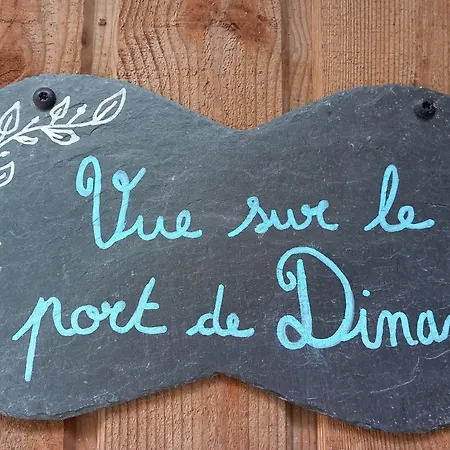 Vue sur le
port de Dinar